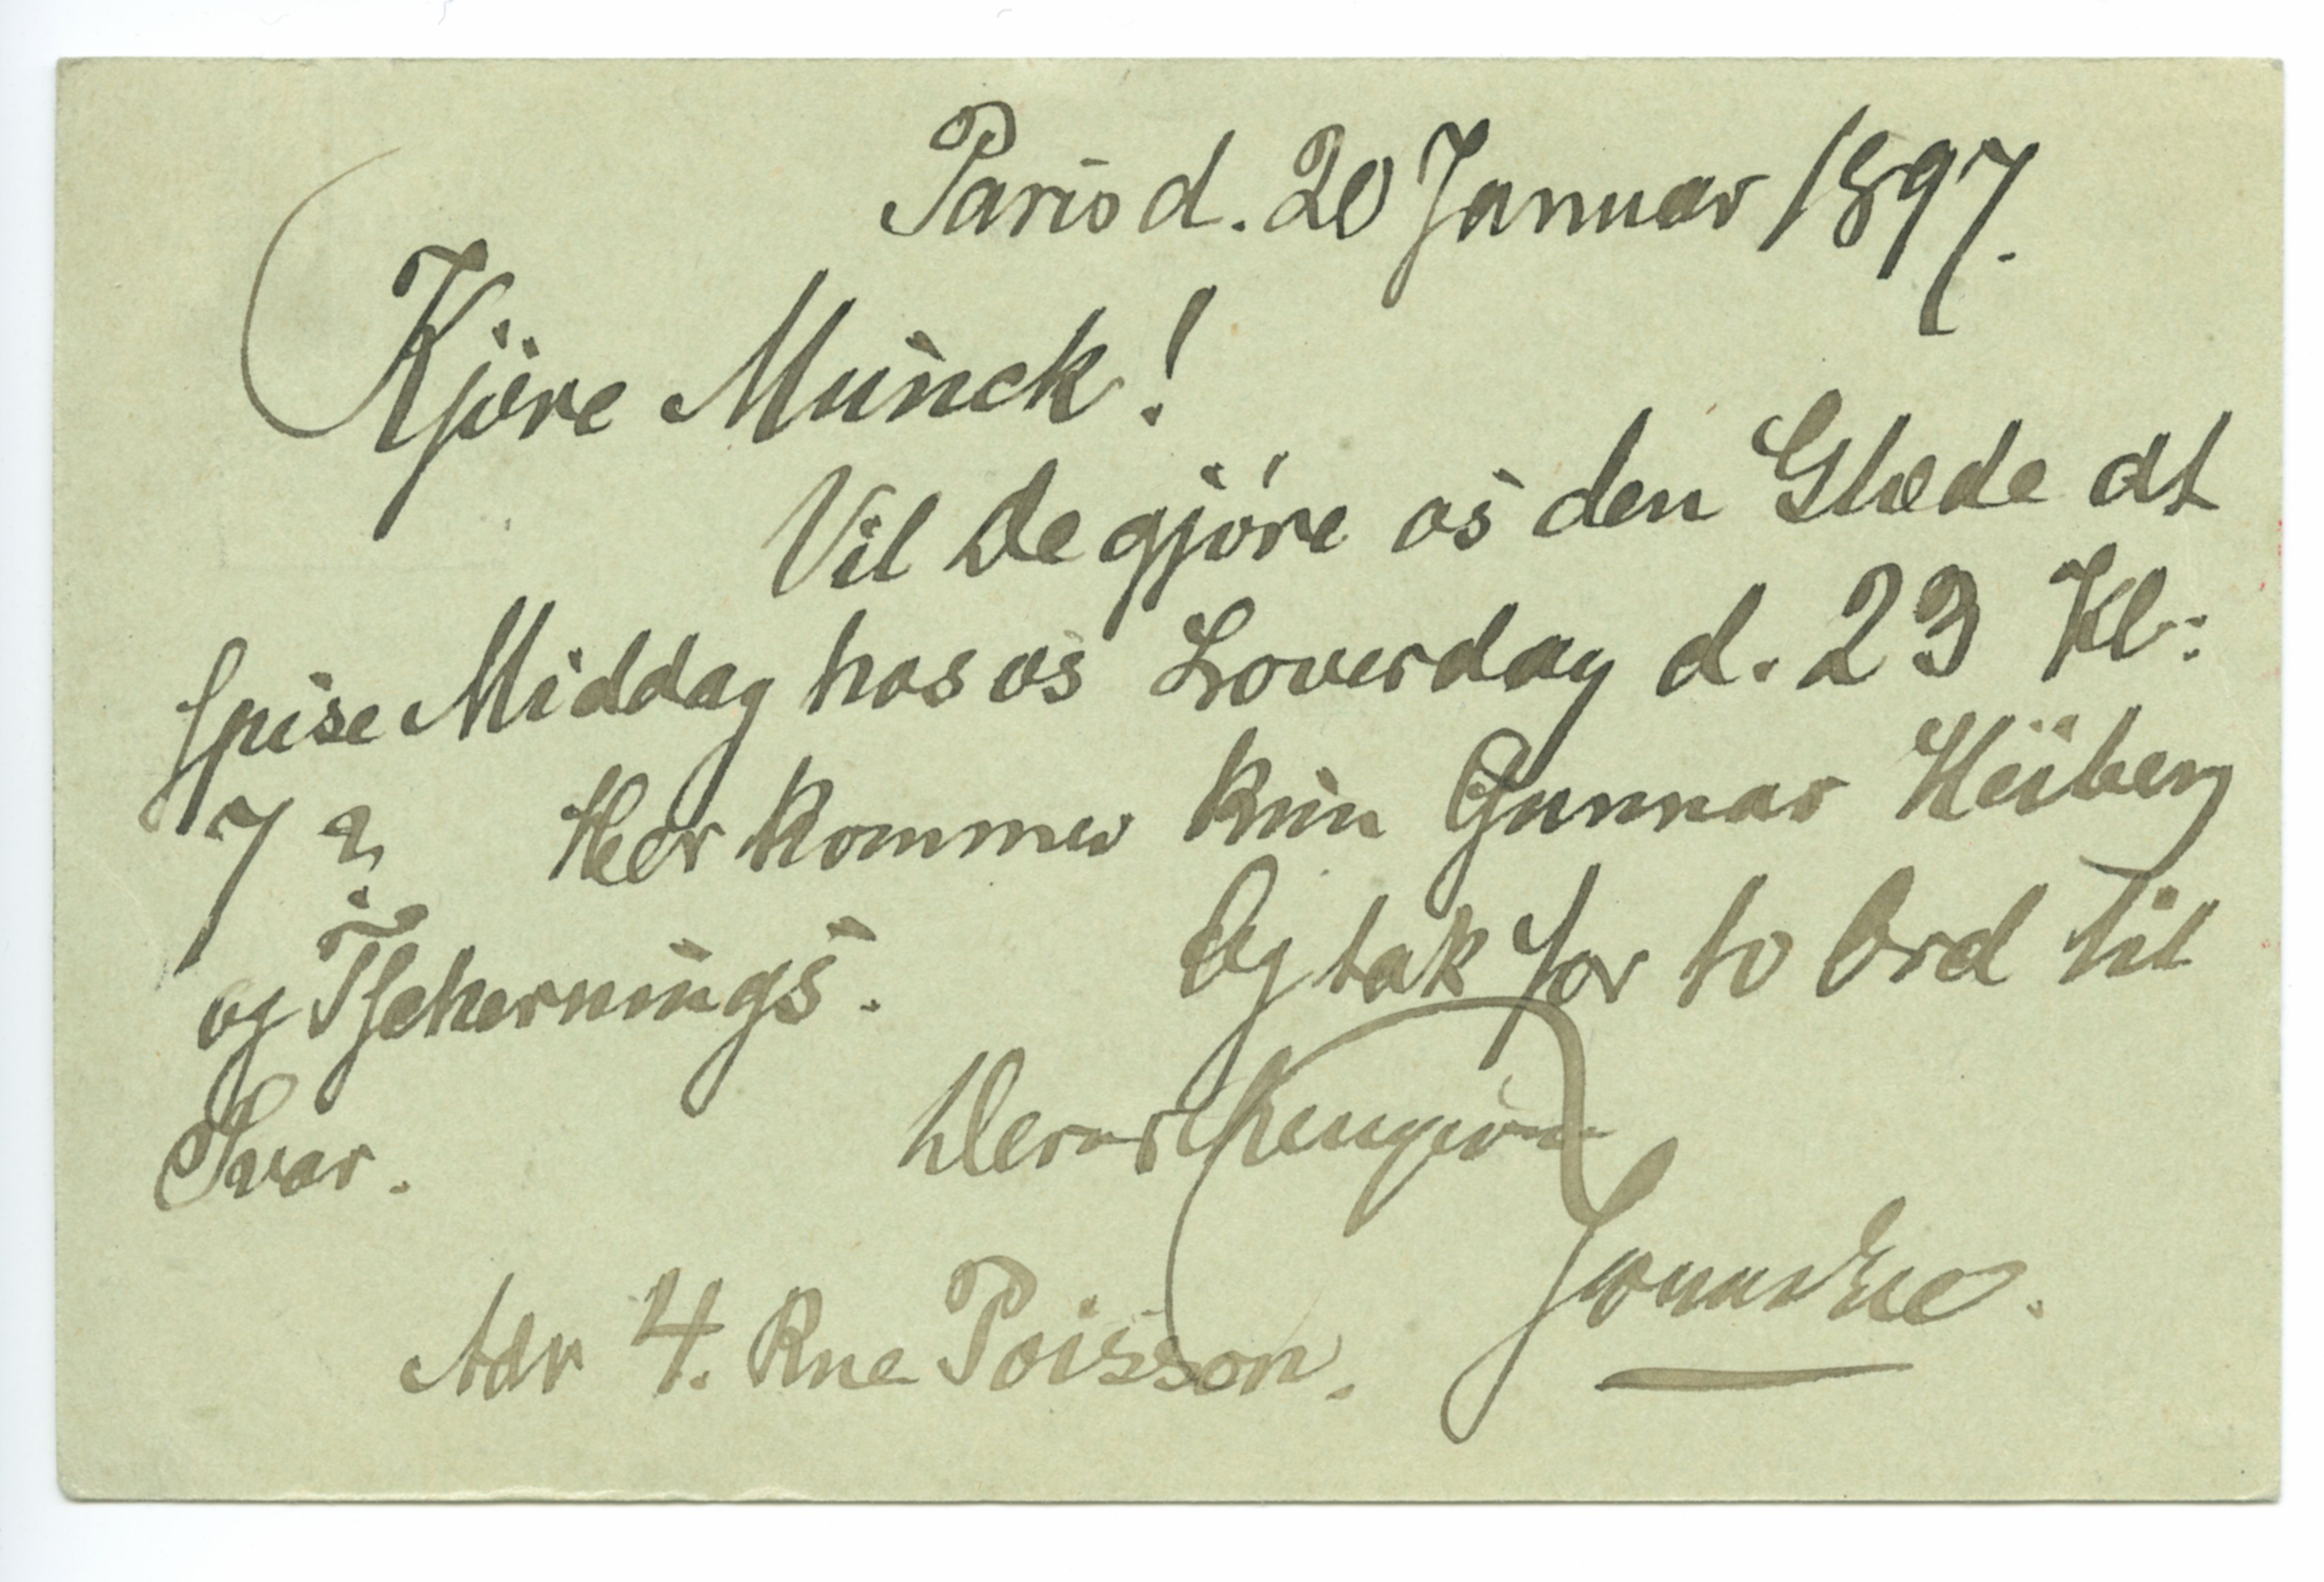 Paris d. 20 Januar 1897.
Kjöre Munck!
Vil De gjöre os den Glæde at
spise Middag hos os Loverdag d. 23 Kl:
7? Her kommer kun Gunnar Heiberg
og Tschernings. Og tak for to Ord til
Svar. Deres hengivne
Adr 4. Rue Poisson.